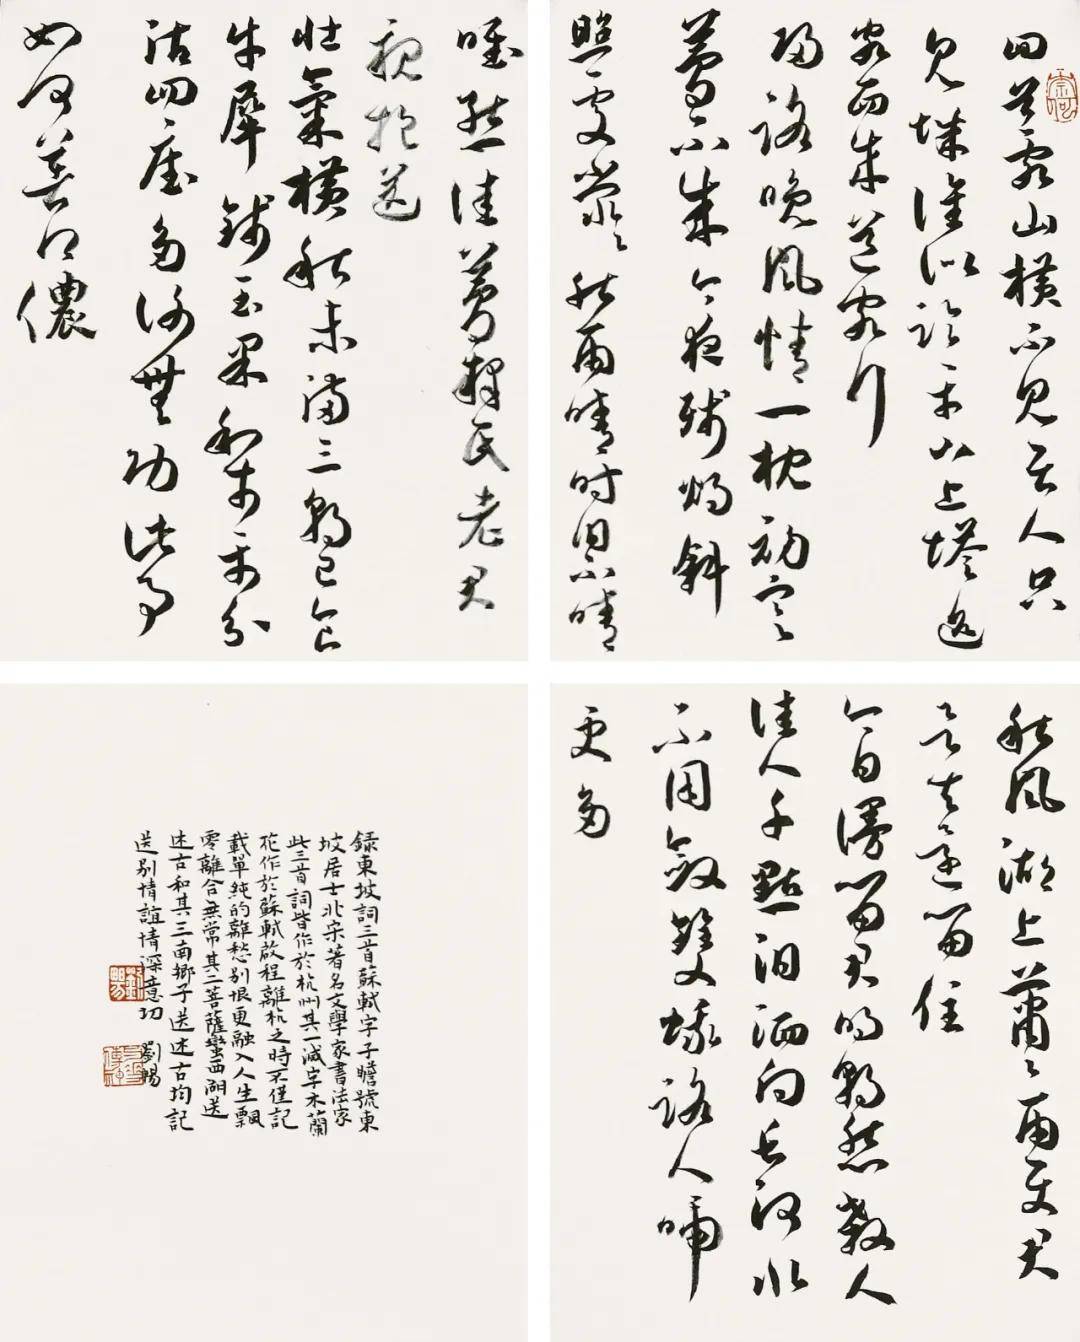 回首亂山橫不見居人只
見城誰似臨平山上塔迎
客西來送客行
歸路晚風情一枕初寒
夢不成今夜殘燈斜
照處熒熒秋雨晴時泪不晴
秋風湖上蕭蕭雨使君
欲去還留住
今日漫留君明朝愁殺人
佳人千點泪洒向長河水
不用斂雙蛾路人啼
更多
惟熊佳夢釋氏老君
親抱送
壯氣橫秋未滿三朝已食
牛犀錢玉果利市平分
沾四座多謝無功此事
如何著得儂
錄東坡詞三首蘇軾字子瞻號東
坡居士北宋著名文學家書法家
此三首詞皆作於杭州其一減字木蘭
花作於蘇軾啟程離杭之時不僅記
載單純的離愁別恨更融入人生飄
零離合無常其二菩薩蠻西湖送
述古和其三南鄉子送述古均記
送別情誼情深意切 劉暢